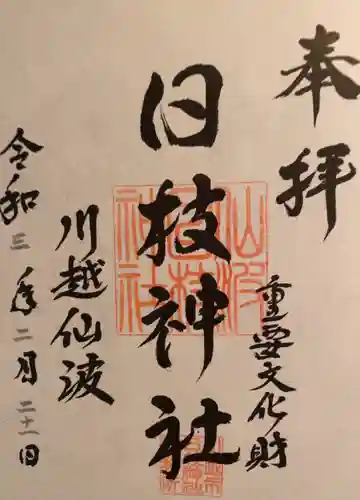 奉拝
重要文化財
日枝神社
川越仙波
令和三年二月二十一日
仙波
日枝
神社